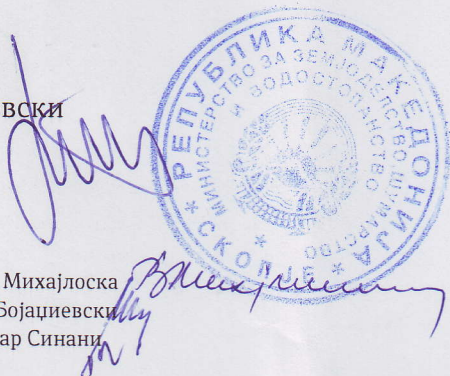 вски
РЕПУБЛИКА МАКЕДОНИЈА
МИНИСТЕРСТВО ЗА ЗЕМЈОДЕЛСТВО ШУМАРСТВО
И ВОДОСТОПАНСТВО
* СКОПЈЕ *
Михајлоска
Бојаџиевски
ар Синани